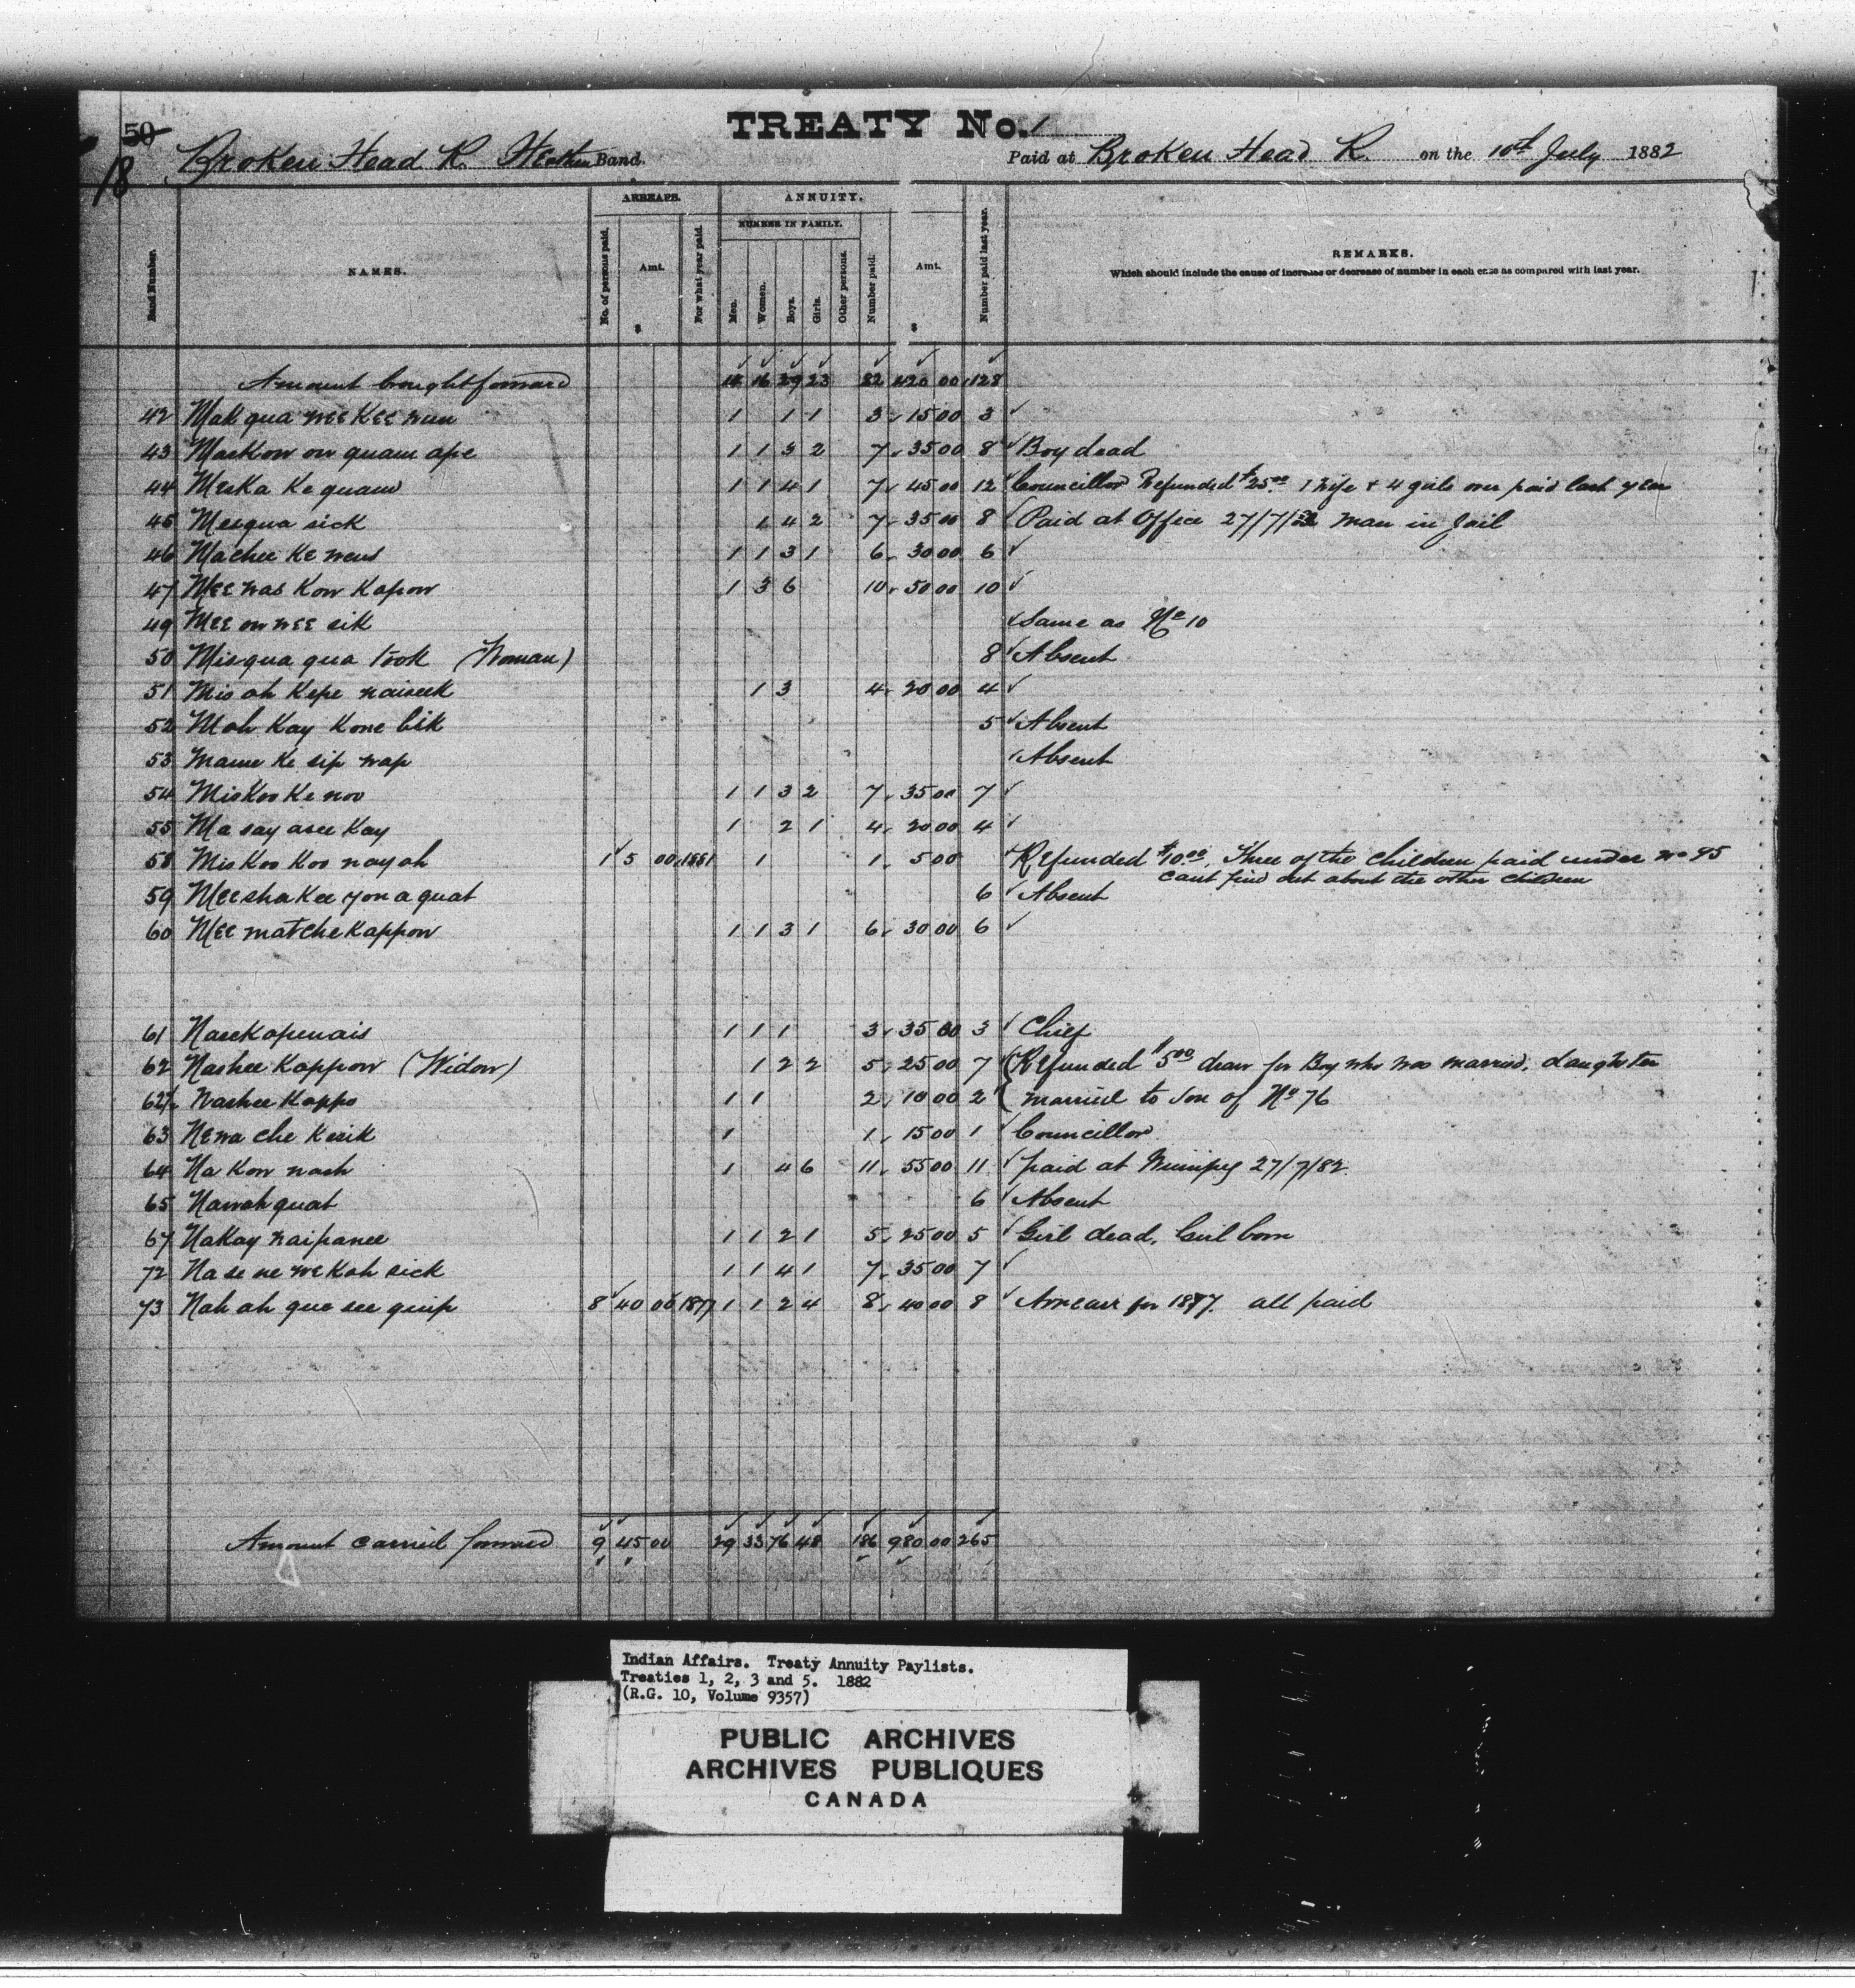 50
18
TREATY No. 1
Broken Head R. Heathen Band.
Paid at Broken Head R. on the 10th July 1882
ARREARS. ANNUITY.
NUMBER IN FAMILY.
Band Number. NAMES. No. of persons paid. Amt. $ For what year paid. Men. Women. Boys. Girls. Other persons. Number paid. Amt. $ Number paid last year. REMARKS.
Which should include the cause of increase or decrease of number in each case as compared with last year.
Amount brought forward 14 16 29 23 82 420 00 128
42 Mak qua wee Kee wun 1 1 1 3 15 00 3
43 Mackow ow quam ape 1 1 3 2 7 35 00 8 Boy dead
44 Meska Ke quam 1 1 4 1 7 45 00 12 Councillor Refunded $25.00 1 wife + 4 girls over paid last year
45 Mesqua sick 1 4 2 7 35 00 8 Paid at Office 27/7/82 man in Jail
46 Machee Ke wens 1 1 3 1 6 30 00 6
47 Mee was Kow Kapow 1 3 6 10 50 00 10
49 Mee ow nee sik Same as No 10
50 Misqua qua took (Woman) 8 Absent
51 Mis ah Kepe naiseek 1 3 4 20 00 4
52 Mah Kay Kone bik 5 Absent
53 Mame Ke sip wap Absent
54 Miskoo Ke noo 1 1 3 2 7 35 00 7
55 Ma say asee Kay 1 2 1 4 20 00 4
58 Mis Koo Koo nay ah 1 5 00 1881 1 1 5 00 Refunded $10.00. Three of the children paid under no 95
cant find out about the other children
59 Mee sha Kee yon a quat 6 Absent
60 Mee matche Kappow 1 1 3 1 6 30 00 6
61 Naeekapenais 1 1 1 3 35 00 3 Chief
62 Nashee Kappow (Widow) 1 2 2 5 25 00 7 Refunded $5.00 drawn for Boy who was married, daughter
62½ Nashee Kappo 1 1 2 10 00 2 married to son of No 76
63 Newa che Kesik 1 1 15 00 1 Councillor
64 Na Kow nash 1 4 6 11 55 00 11 paid at Winnipeg 27/7/82.
65 Nawahquat 6 Absent
67 Nakay naipanee 1 1 2 1 5 25 00 5 Girl dead, Girl born
72 Na se ne we Kah sick 1 1 4 1 7 35 00 7
73 Nah ah que see quip 8 40 00 1877 1 1 2 4 8 40 00 8 Arrears for 1877. all paid
Amount carried forward 9 45 00 29 33 76 48 186 980 00 265
Indian Affairs. Treaty Annuity Paylists.
Treaties 1, 2, 3 and 5. 1882
(R.G. 10, Volume 9357)
PUBLIC ARCHIVES
ARCHIVES PUBLIQUES
CANADA